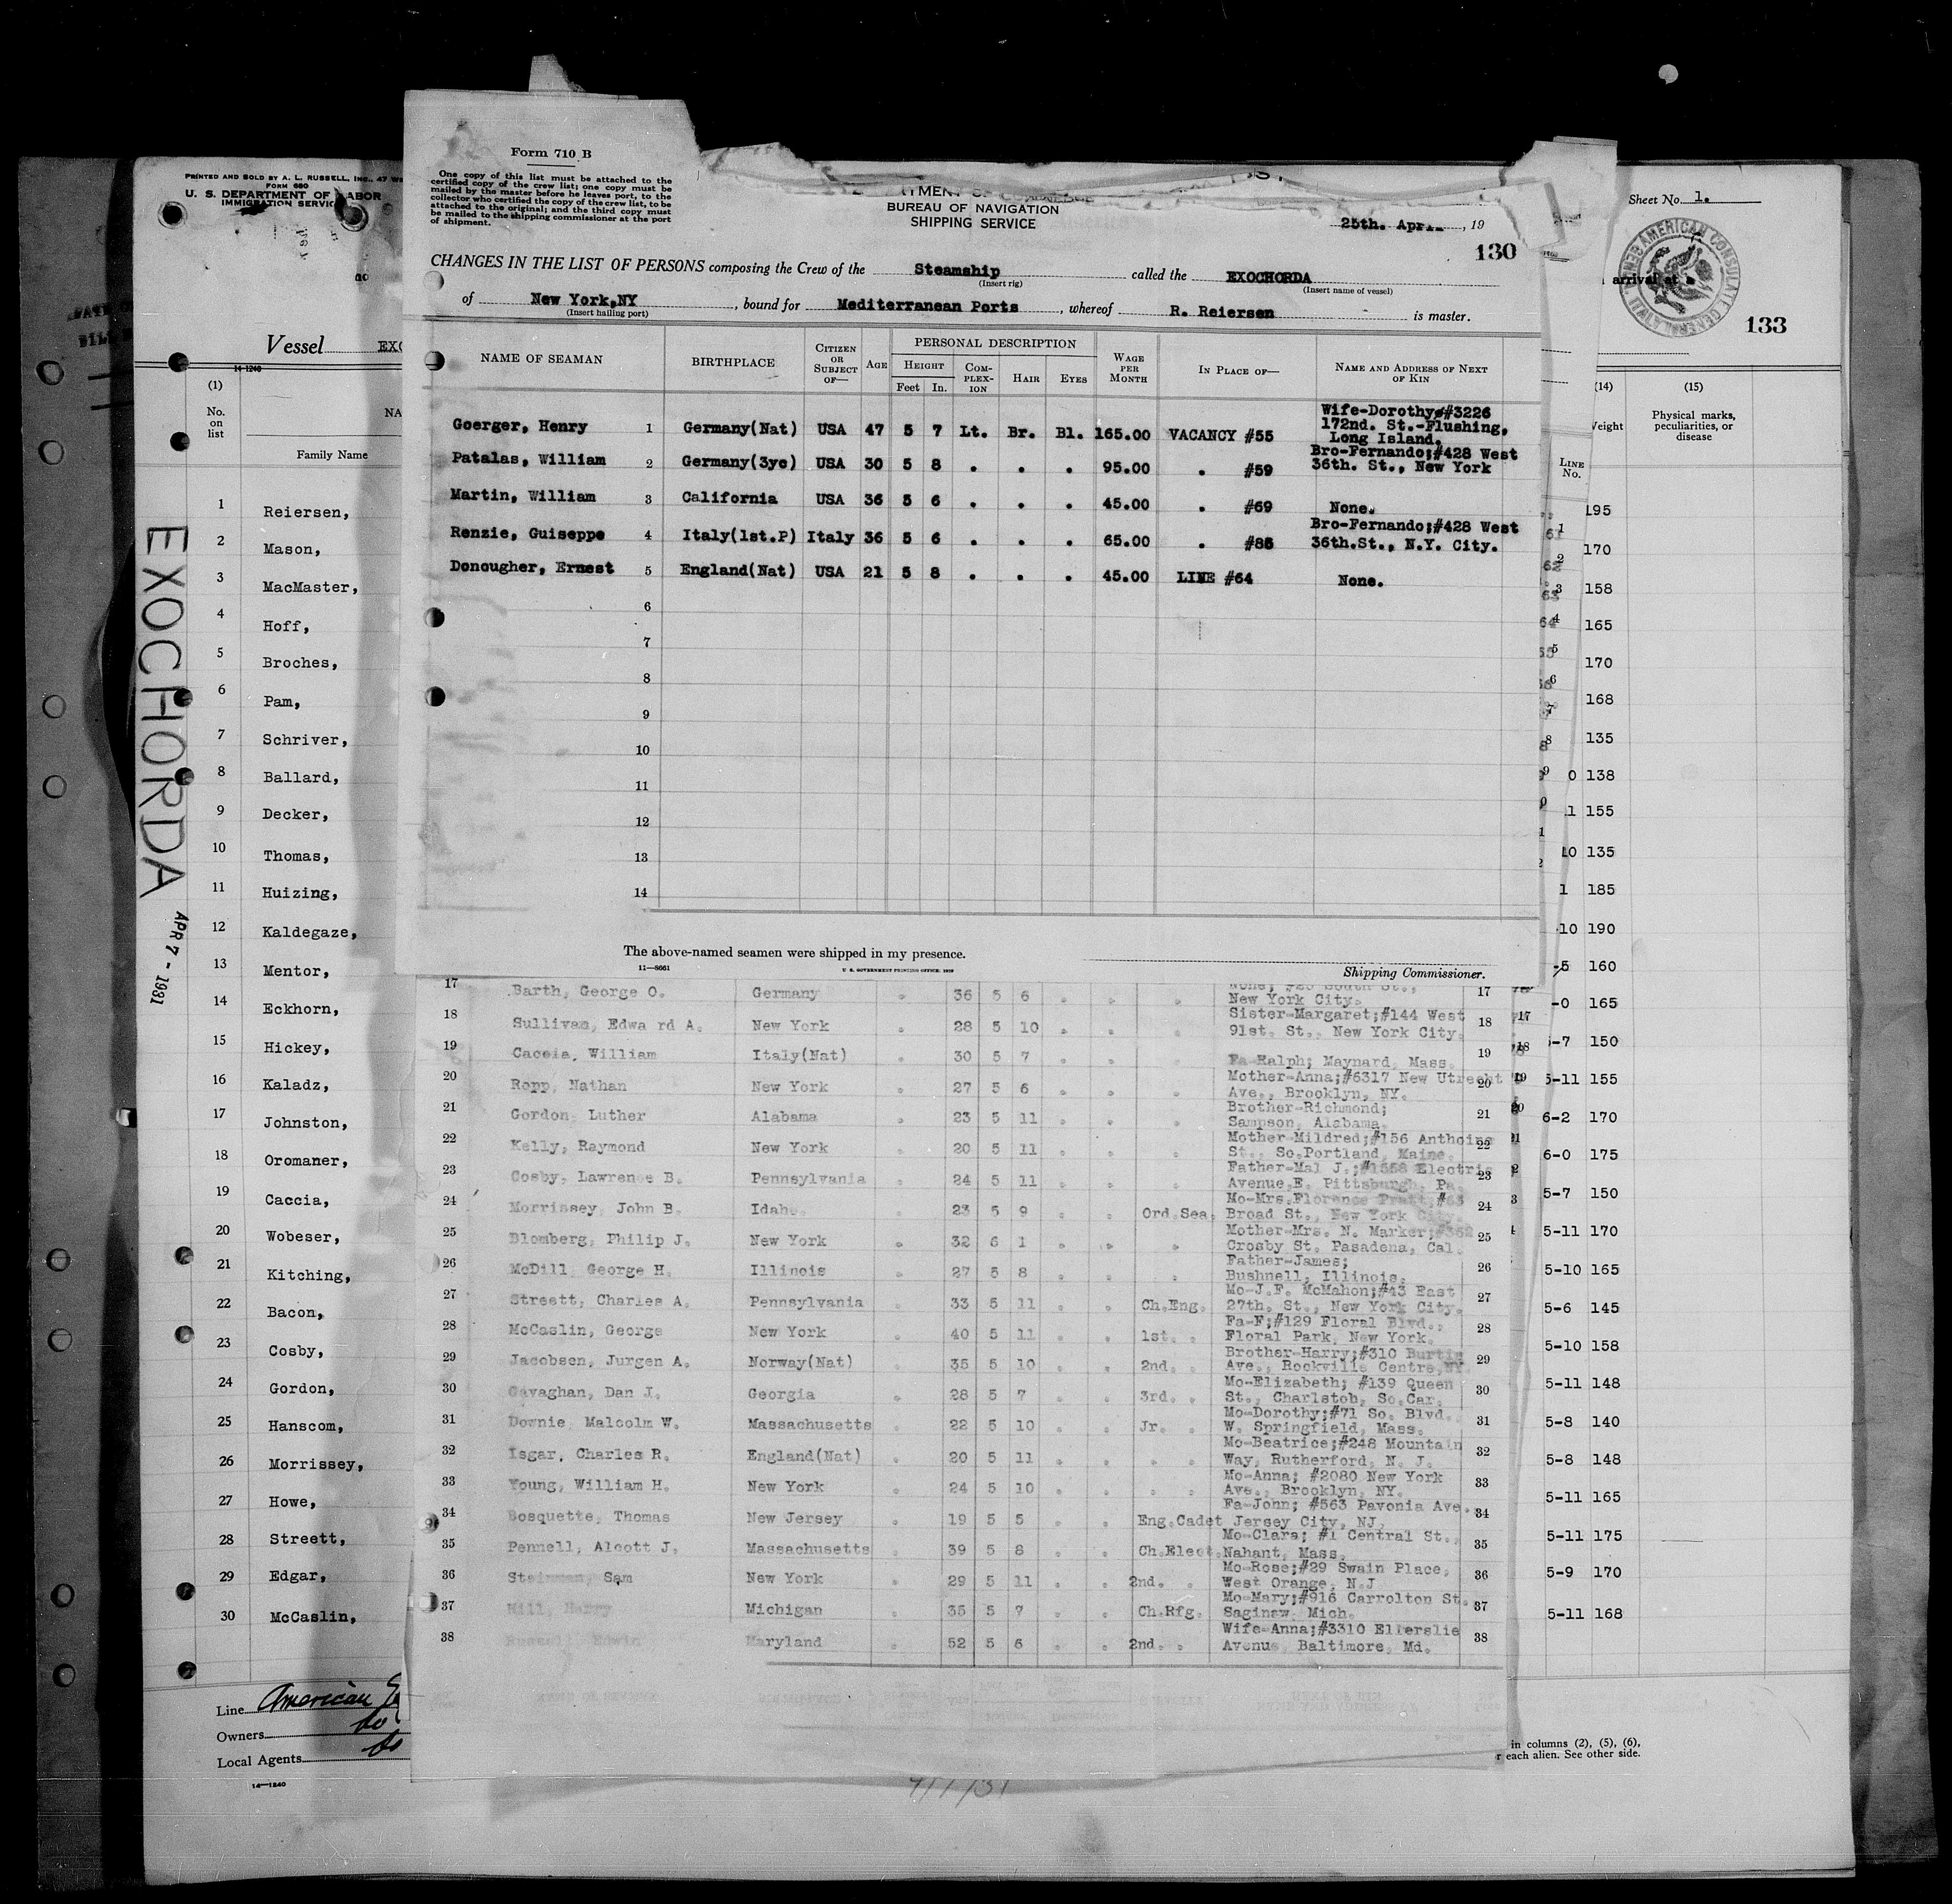 Form 710 B
One copy of this list must be attached to the
certified copy of the crew list; one copy must be
mailed by the master before he leaves port, to the
collector who certified the copy of the crew list, to be
attached to the original; and the third copy must
be mailed to the shipping commissioner at the port
of shipment.
BUREAU OF NAVIGATION
SHIPPING SERVICE
25th. April, 19
130
CHANGES IN THE LIST OF PERSONS composing the Crew of the Steamship called the EXOCHORDA
(Insert rig) (Insert name of vessel)
of New York,NY, bound for Mediterranean Ports, whereof R. Reiersen is master.
(Insert hailing port)
NAME OF SEAMAN BIRTHPLACE CITIZEN OR SUBJECT OF— AGE PERSONAL DESCRIPTION HEIGHT Feet In. COMPLEXION HAIR EYES WAGE PER MONTH IN PLACE OF— NAME AND ADDRESS OF NEXT OF KIN
Goerger, Henry 1 Germany(Nat) USA 47 5 7 Lt. Br. Bl. 165.00 VACANCY #55 Wife-Dorothy#3226 172nd. St.-Flushing, Long Island.
Patalas, William 2 Germany(3yc) USA 30 5 8 . . . 95.00 . #59 Bro-Fernando;#428 West 36th. St., New York
Martin, William 3 California USA 36 5 6 . . . 45.00 . #69 None.
Renzie, Guiseppe 4 Italy(1st.P) Italy 36 5 6 . . . 65.00 . #88 Bro-Fernando;#428 West 36th.St., N.Y. City.
Donougher, Ernest 5 England(Nat) USA 21 5 8 . . . 45.00 LINE #64 None.
6
7
8
9
10
11
12
13
14
The above-named seamen were shipped in my presence.
11—8661 U. S. GOVERNMENT PRINTING OFFICE: 1929 Shipping Commissioner.
17 Barth, George O. Germany 36 5 6 New York City. 17
18 Sullivan, Edwa rd A. New York 28 5 10 Sister-Margaret;#144 West 91st. St., New York City. 18
19 Caccia, William Italy(Nat) 30 5 7 Fa-Ralph; Maynard, Mass. 19
20 Ropp, Nathan New York 27 5 6 Mother-Anna;#6317 New Utrecht Ave., Brooklyn, NY. 20
21 Gordon, Luther Alabama 23 5 11 Brother-Richmond; Sampson, Alabama. 21
22 Kelly, Raymond New York 20 5 11 Mother-Mildred;#156 Anthoine St., So.Portland, Maine. 22
23 Cosby, Lawrence B. Pennsylvania 24 5 11 Father-Mal J.;#1558 Electric Avenue,E. Pittsburgh, Pa. 23
24 Morrissey, John B. Idaho 23 5 9 Ord.Sea. Mo-Mrs.Florence Pratt,#63 Broad St., New York City. 24
25 Blomberg, Philip J. New York 32 6 1 Mother-Mrs. N. Marker;#362 Crosby St. Pasadena, Cal. 25
26 McDill George H. Illinois 27 5 8 Father-James; Bushnell, Illinois. 26
27 Streett, Charles A. Pennsylvania 33 5 11 Ch.Eng. Mo-J.F. McMahon;#43 East 27th. St., New York City. 27
28 McCaslin, George New York 40 5 11 1st. . Fa-F;#129 Floral Blvd., Floral Park, New York. 28
29 Jacobsen, Jurgen A. Norway(Nat) 35 5 10 2nd. . Brother-Harry;#310 Ave., Rockville Centre,NY. 29
30 Gavaghan, Dan J. Georgia 28 5 7 3rd. . Mo-Elizabeth; #139 Queen St., Charlstob, So.Car. 30
31 Downie, Malcolm W. Massachusetts 22 5 10 Jr. . Mo-Dorothy;#71 So. Blvd. W. Springfield, Mass. 31
32 Isgar, Charles R. England(Nat) 20 5 11 . . Mo-Beatrice;#248 Mountain Way, Rutherford, N. J. 32
33 Young, William H. New York 24 5 10 . . Mo-Anna; #2080 New York Ave., Brooklyn, NY. 33
34 Bosquette, Thomas New Jersey 19 5 5 Eng.Cadet Fa-John; #563 Pavonia Ave. Jersey City, NJ. 34
35 Pennell, Alcott J. Massachusetts 39 5 8 Ch.Elect. Mo-Clara; #1 Central St., Nahant, Mass. 35
36 Sam New York 29 5 11 2nd. . Mo-Rose;#29 Swain Place, West Orange, N.J 36
37 Hill, Harry Michigan 35 5 7 Ch.Rfg. Mo-Mary;#916 Carrolton St. Saginaw Mich. 37
38 Edwin Maryland 52 5 6 2nd. . Wife-Anna;#3310 Ellerslie Avenue, Baltimore, Md. 38
PRINTED AND SOLD BY A. L. RUSSELL, INC., 47
FORM 680
U. S. DEPARTMENT OF LABOR
IMMIGRATION SERVICE
Sheet No. 1.
AMERICAN CONSULATE GENERAL
arrival at
133
Vessel EXO
14-1240
(1) No. on list
Family Name
(14) Weight
(15) Physical marks, peculiarities, or disease
LINE No.
EXOCHORDA
APR 7 - 1931
1 Reiersen, 195
2 Mason, 170
3 MacMaster, 158
4 Hoff, 165
5 Broches, 170
6 Pam, 168
7 Schriver, 135
8 Ballard, 0 138
9 Decker, 1 155
10 Thomas, 10 135
11 Huizing, 1 185
12 Kaldegaze, 10 190
13 Mentor, -5 160
14 Eckhorn, -0 165
15 Hickey, -7 150
16 Kaladz, 5-11 155
17 Johnston, 6-2 170
18 Oromaner, 6-0 175
19 Caccia, 5-7 150
20 Wobeser, 5-11 170
21 Kitching, 5-10 165
22 Bacon, 5-6 145
23 Cosby, 5-10 158
24 Gordon, 5-11 148
25 Hanscom, 5-8 140
26 Morrissey, 5-8 148
27 Howe, 5-11 165
28 Streett, 5-11 175
29 Edgar, 5-9 170
30 McCaslin, 5-11 168
Line American
Owners do
Local Agents do
14—1240
in columns (2), (5), (6),
each alien. See other side.
4/7/31